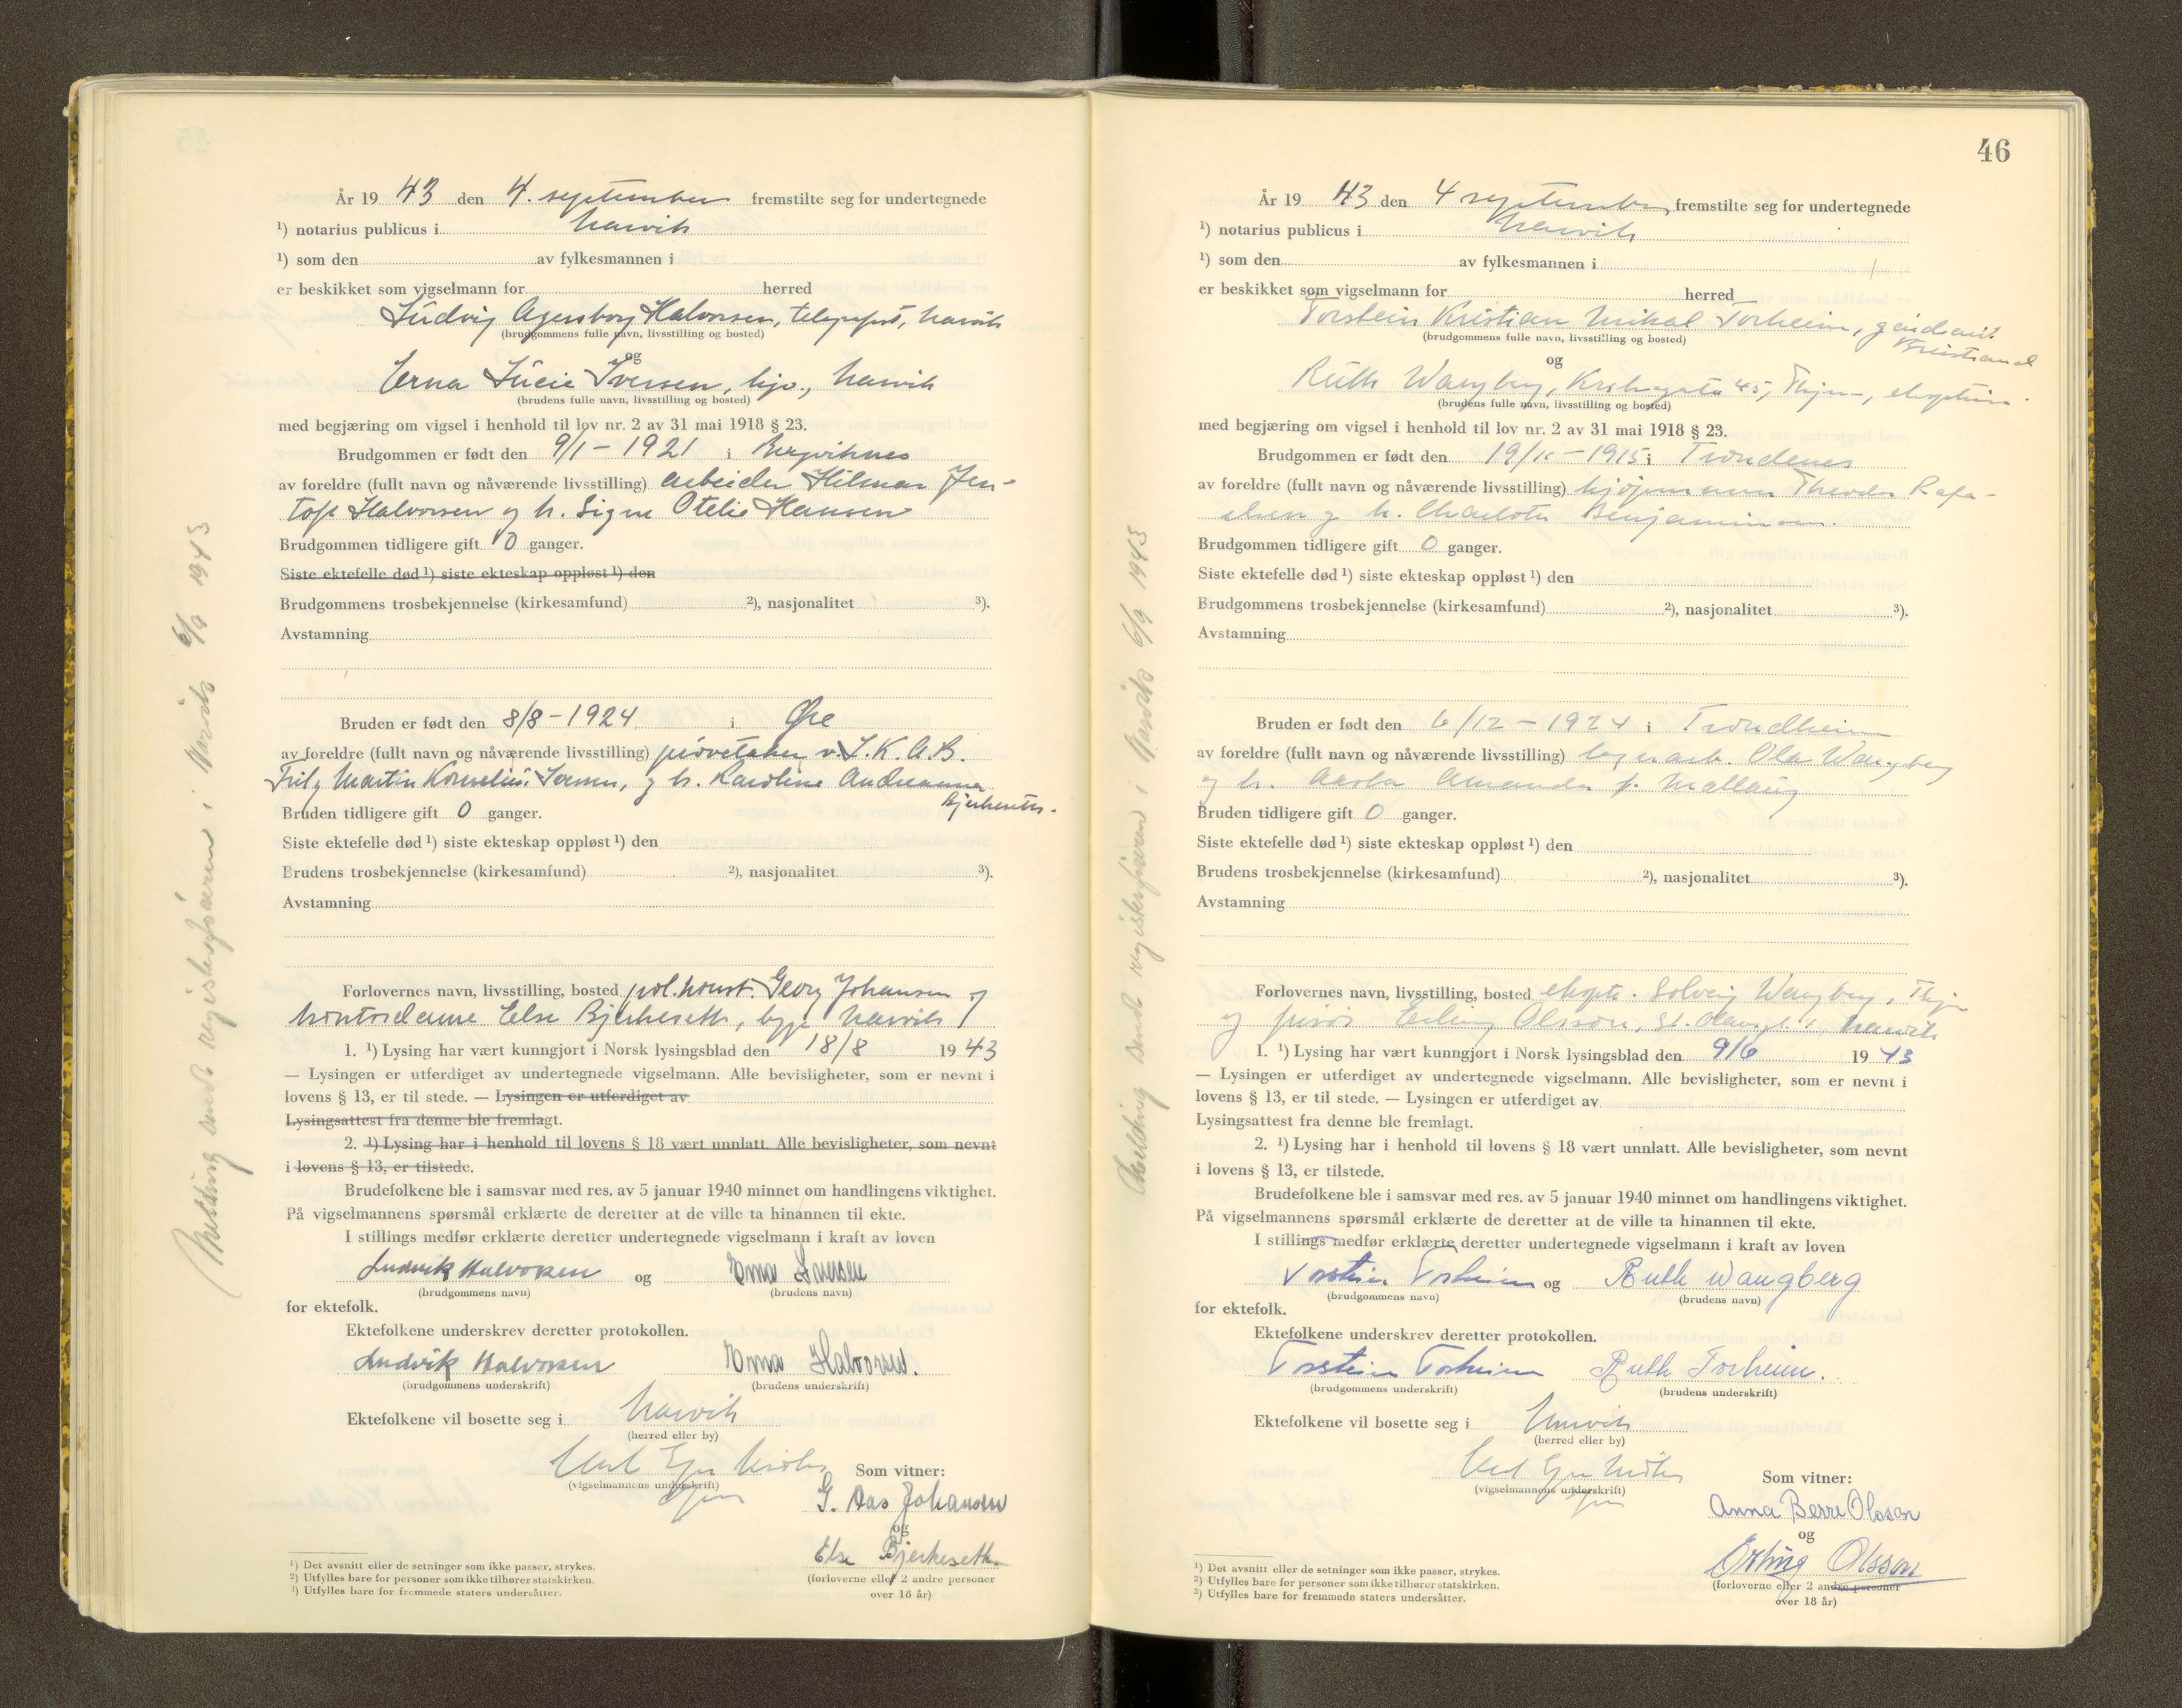 År 19 43 den 4. september fremstilte seg for undertegnede
¹) notarius publicus i Narvik
¹) som den av fylkesmannen i
er beskikket som vigselmann for herred
Ludvig Agersborg Halvorsen, telegrafist, Narvik
(brudgommens fulle navn, livsstilling og bosted)
og
Erna Lucie Iversen, hjv., Narvik
(brudens fulle navn, livsstilling og bosted)
med begjæring om vigsel i henhold til lov nr. 2 av 31 mai 1918 § 23.
Brudgommen er født den 9/1 - 1921 i Bergviknes
av foreldre (fullt navn og nåværende livsstilling) arbeider Hilmar Jen-
toft Halvorsen og h. Signe Otelie Hansen
Brudgommen tidligere gift 0 ganger.
Siste ektefelle død ¹) siste ekteskap oppløst ¹) den
Brudgommens trosbekjennelse (kirkesamfund) ²), nasjonalitet ³).
Avstamning
Bruden er født den 8/8 - 1924 i Øre
av foreldre (fullt navn og nåværende livsstilling) prøvetaker v. L.K.A.B.
Fritz Martin Kornelius Iversen, og h. Karoline Andreanna
Bjerkeseth.
Bruden tidligere gift 0 ganger.
Siste ektefelle død ¹) siste ekteskap oppløst ¹) den
Brudens trosbekjennelse (kirkesamfund) ²), nasjonalitet ³).
Avstamning
Forlovernes navn, livsstilling, bosted pol.konst. Georg Johansen og
kontordame Else Bjerkeseth, begge Narvik
1. ¹) Lysing har vært kunngjort i Norsk lysingsblad den 18/8 19 43
— Lysingen er utferdiget av undertegnede vigselmann. Alle bevisligheter, som er nevnt i
lovens § 13, er til stede. — Lysingen er utferdiget av
Lysingsattest fra denne ble fremlagt.
2. ¹) Lysing har i henhold til lovens § 18 vært unnlatt. Alle bevisligheter, som nevnt
i lovens § 13, er tilstede.
Brudefolkene ble i samsvar med res. av 5 januar 1940 minnet om handlingens viktighet.
På vigselmannens spørsmål erklærte de deretter at de ville ta hinannen til ekte.
I stillings medfør erklærte deretter undertegnede vigselmann i kraft av loven
Ludvik Halvorsen og Erna Iversen
(brudgommens navn) (brudens navn)
for ektefolk.
Ektefolkene underskrev deretter protokollen.
Ludvik Halvorsen Erna Halvorsen.
(brudgommens underskrift) (brudens underskrift)
Ektefolkene vil bosette seg i Narvik
(herred eller by)
Som vitner:
(vigselmannens underskrift)
G. Aas Johansen
og
Else Bjerkeseth
(forloverne eller 2 andre personer
over 18 år)
¹) Det avsnitt eller de setninger som ikke passer, strykes.
²) Utfylles bare for personer som ikke tilhører statskirken.
³) Utfylles bare for fremmede staters undersåtter.
Melding sendt registerføreren i Narvik 6/9 1943
46
År 19 43 den 4 september fremstilte seg for undertegnede
¹) notarius publicus i Narvik
¹) som den av fylkesmannen i
er beskikket som vigselmann for herred
Torstein Kristian Mikal Torheim,
(brudgommens fulle navn, livsstilling og bosted)
og
Ruth Wangberg, 45,
(brudens fulle navn, livsstilling og bosted)
med begjæring om vigsel i henhold til lov nr. 2 av 31 mai 1918 § 23.
Brudgommen er født den 19/11 - 1915 i Trondenes
av foreldre (fullt navn og nåværende livsstilling) Theodor Rafa-
elsen og h. Charlotte Benjaminsen.
Brudgommen tidligere gift 0 ganger.
Siste ektefelle død ¹) siste ekteskap oppløst ¹) den
Brudgommens trosbekjennelse (kirkesamfund) ²), nasjonalitet ³).
Avstamning
Bruden er født den 6/12 - 1924 i Trondheim
av foreldre (fullt navn og nåværende livsstilling) Ola Wangberg
og h. Amanda f.
Bruden tidligere gift 0 ganger.
Siste ektefelle død ¹) siste ekteskap oppløst ¹) den
Brudens trosbekjennelse (kirkesamfund) ²), nasjonalitet ³).
Avstamning
Forlovernes navn, livsstilling, bosted eksptr. Solveig Wangberg,
og frisør Erling Olsson, St. Olavsgt. 1, Narvik
1. ¹) Lysing har vært kunngjort i Norsk lysingsblad den 9/6 19 43
— Lysingen er utferdiget av undertegnede vigselmann. Alle bevisligheter, som er nevnt i
lovens § 13, er til stede. — Lysingen er utferdiget av
Lysingsattest fra denne ble fremlagt.
2. ¹) Lysing har i henhold til lovens § 18 vært unnlatt. Alle bevisligheter, som nevnt
i lovens § 13, er tilstede.
Brudefolkene ble i samsvar med res. av 5 januar 1940 minnet om handlingens viktighet.
På vigselmannens spørsmål erklærte de deretter at de ville ta hinannen til ekte.
I stillings medfør erklærte deretter undertegnede vigselmann i kraft av loven
Torstein Torheim og Ruth Wangberg
(brudgommens navn) (brudens navn)
for ektefolk.
Ektefolkene underskrev deretter protokollen.
Torstein Torheim Ruth Torheim.
(brudgommens underskrift) (brudens underskrift)
Ektefolkene vil bosette seg i Narvik
(herred eller by)
Som vitner:
(vigselmannens underskrift)
Anna Berre Olsson
og
Erling Olsson
(forloverne eller 2 andre personer
over 18 år)
¹) Det avsnitt eller de setninger som ikke passer, strykes.
²) Utfylles bare for personer som ikke tilhører statskirken.
³) Utfylles bare for fremmede staters undersåtter.
Melding sendt registerføreren i Narvik 6/9 1943